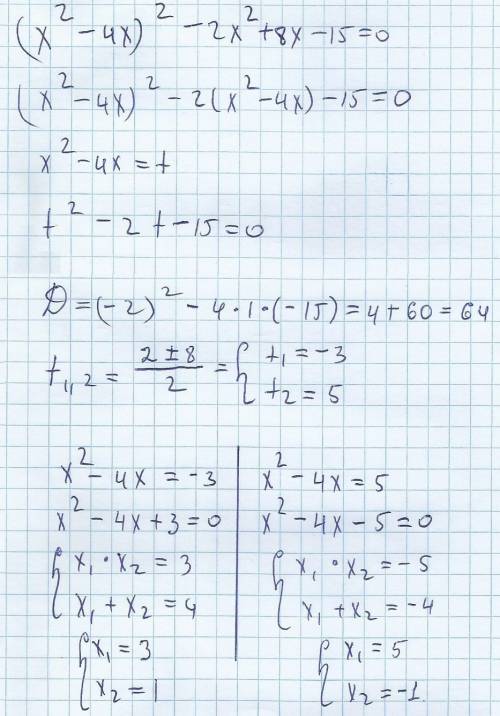 (x² - 4x)² - 2x² + 8x - 15 = 0
(x² - 4x)² - 2(x² - 4x) - 15 = 0
x² - 4x = t
t² - 2t - 15 = 0
D = (-2)² - 4 · 1 · (-15) = 4 + 60 = 64
t₁,₂ = (2 ± 8)/2 = { t₁ = -3
t₂ = 5
x² - 4x = -3
x² - 4x + 3 = 0
{ x₁ · x₂ = 3
x₁ + x₂ = 4
{ x₁ = 3
x₂ = 1
x² - 4x = 5
x² - 4x - 5 = 0
{ x₁ · x₂ = -5
x₁ + x₂ = -4
{ x₁ = 5
x₂ = -1